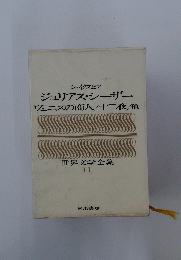 シェイクスピア
ジュリアス・シーザー
ヴェニスの商人・十二夜・他
世界文学全集
11